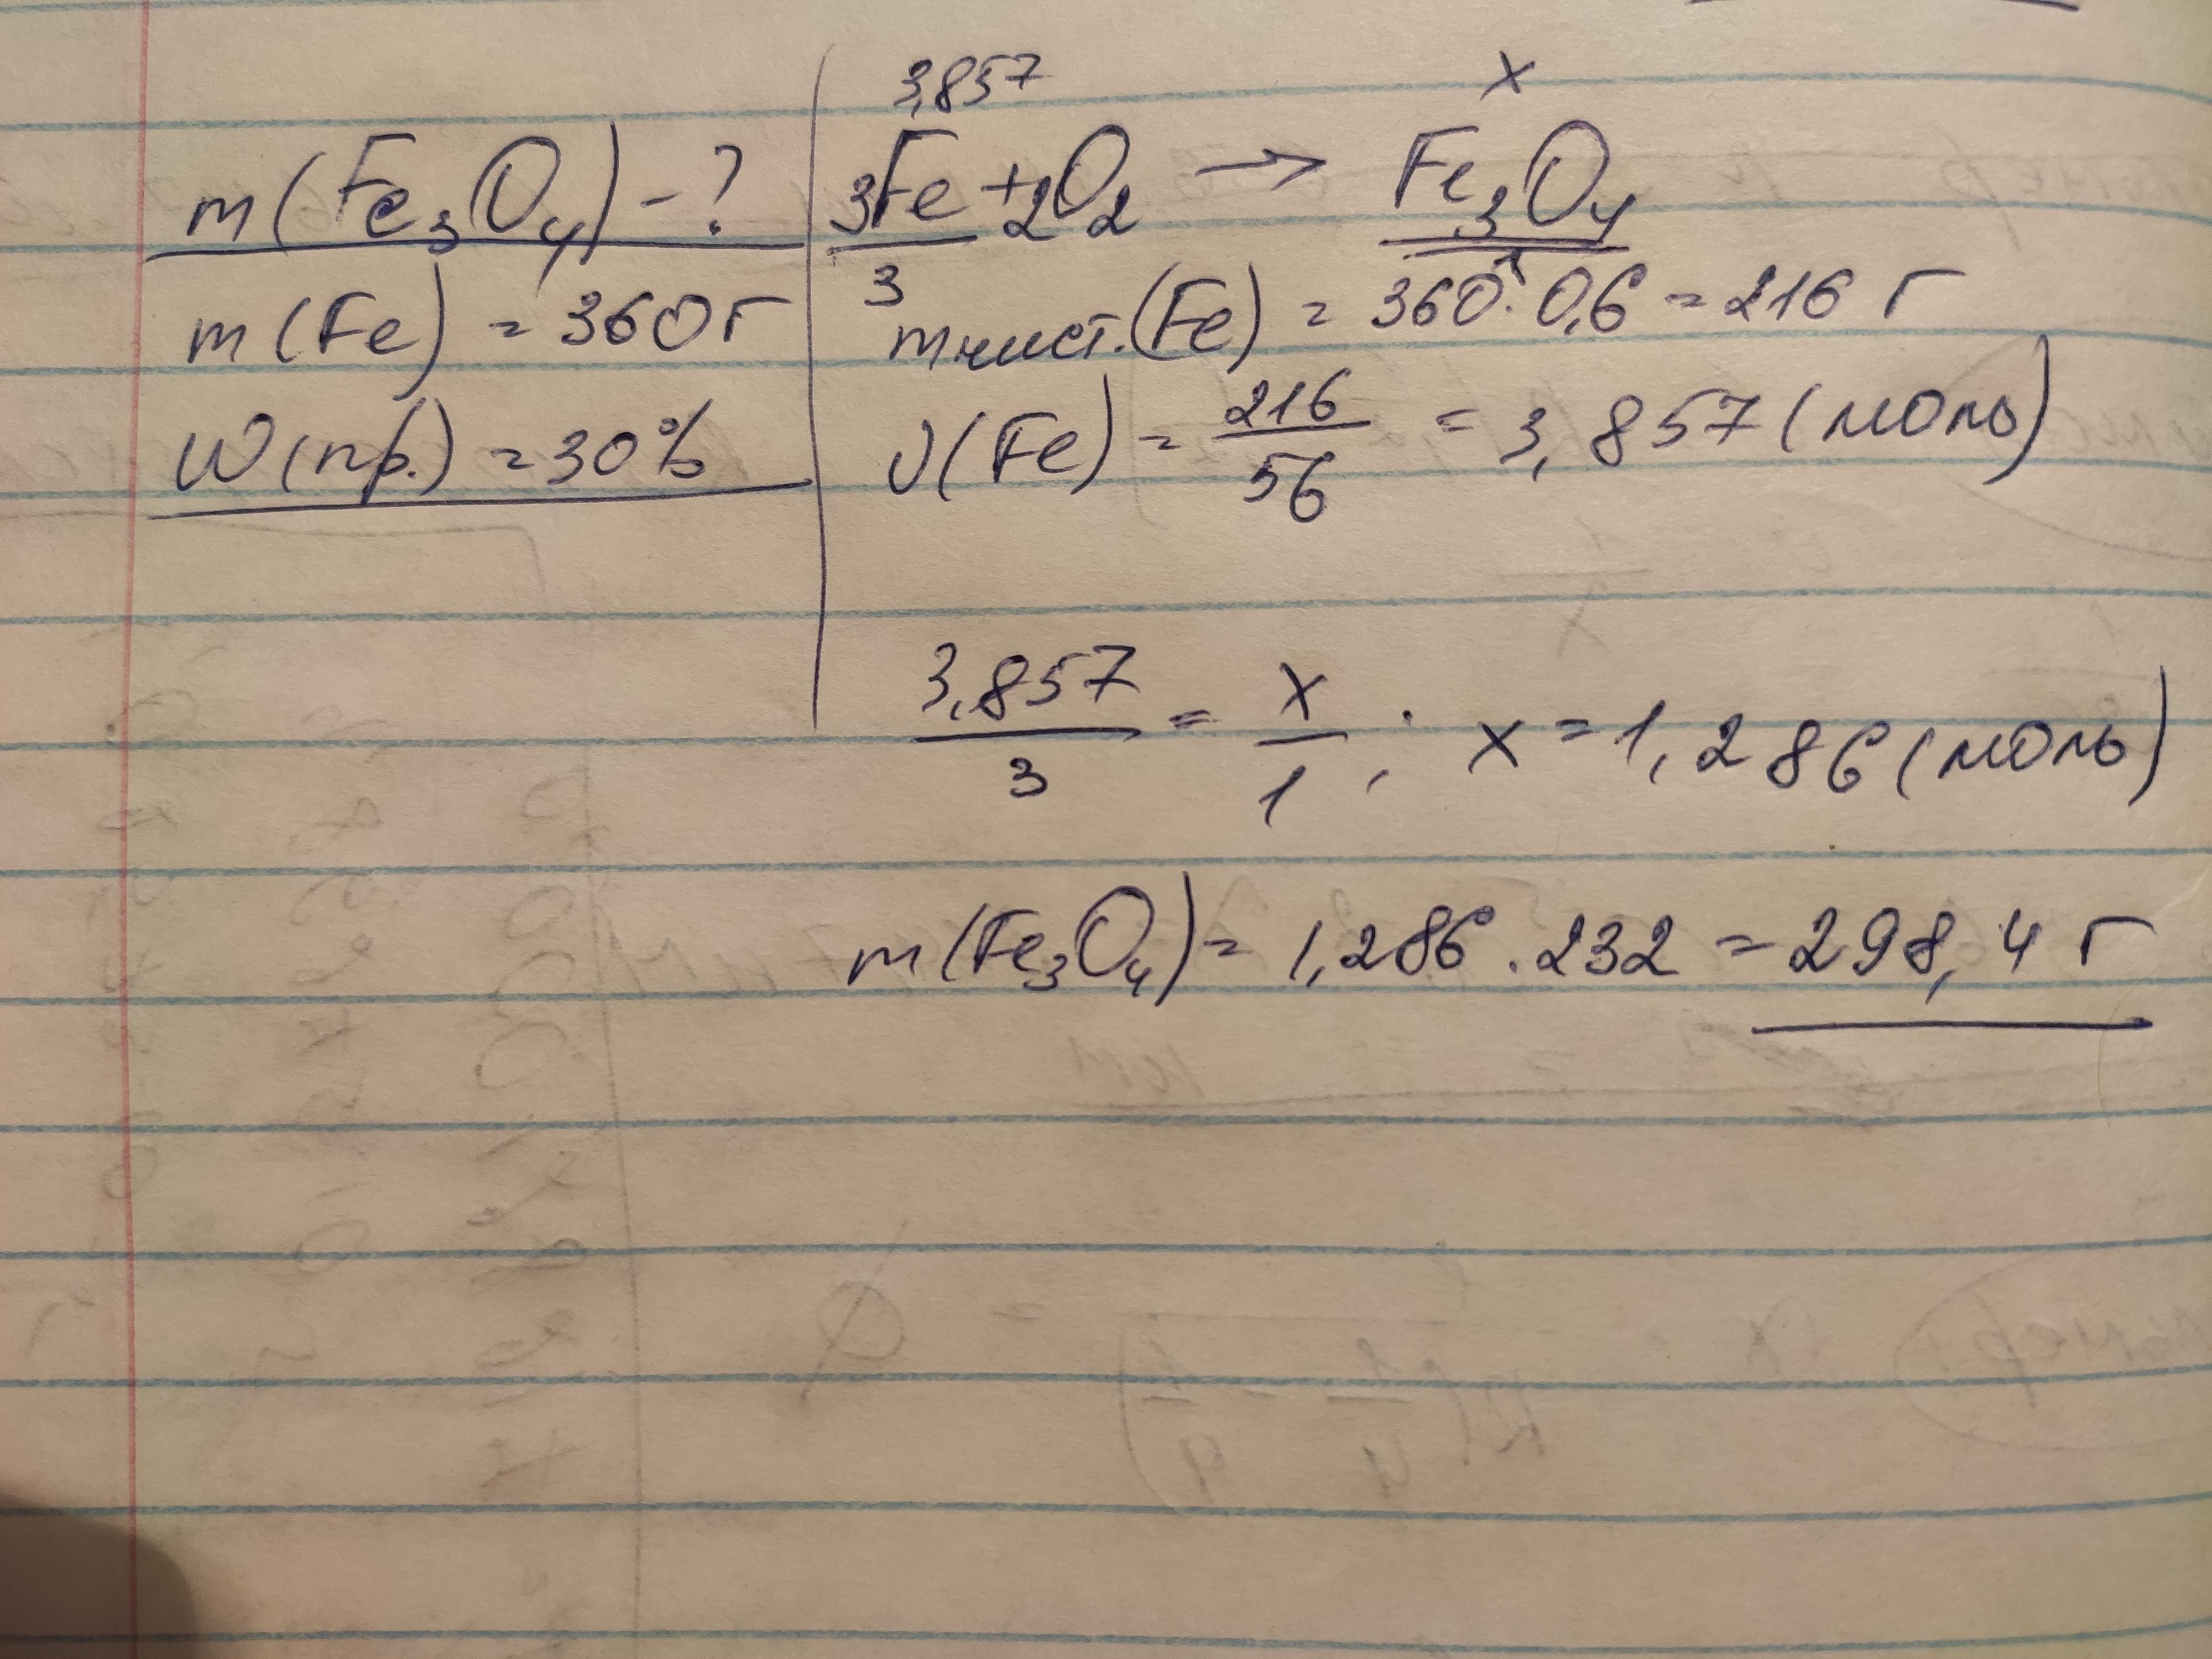 m(Fe₃O₄) - ?
m(Fe) = 360 г
W(пр.) = 30%
3,857 x
3Fe + 2O₂ → Fe₃O₄
3 1
mчист.(Fe) = 360 · 0,6 = 216 г
ν(Fe) = 216/56 = 3,857 (моль)
3,857/3 = x/1 ; x = 1,286 (моль)
m(Fe₃O₄) = 1,286 · 232 = 298,4 г